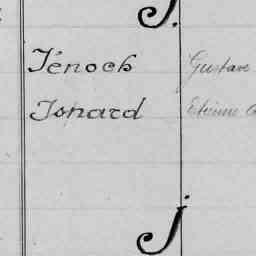 I.
Iénoch Gustave
Isnard Etienne
J